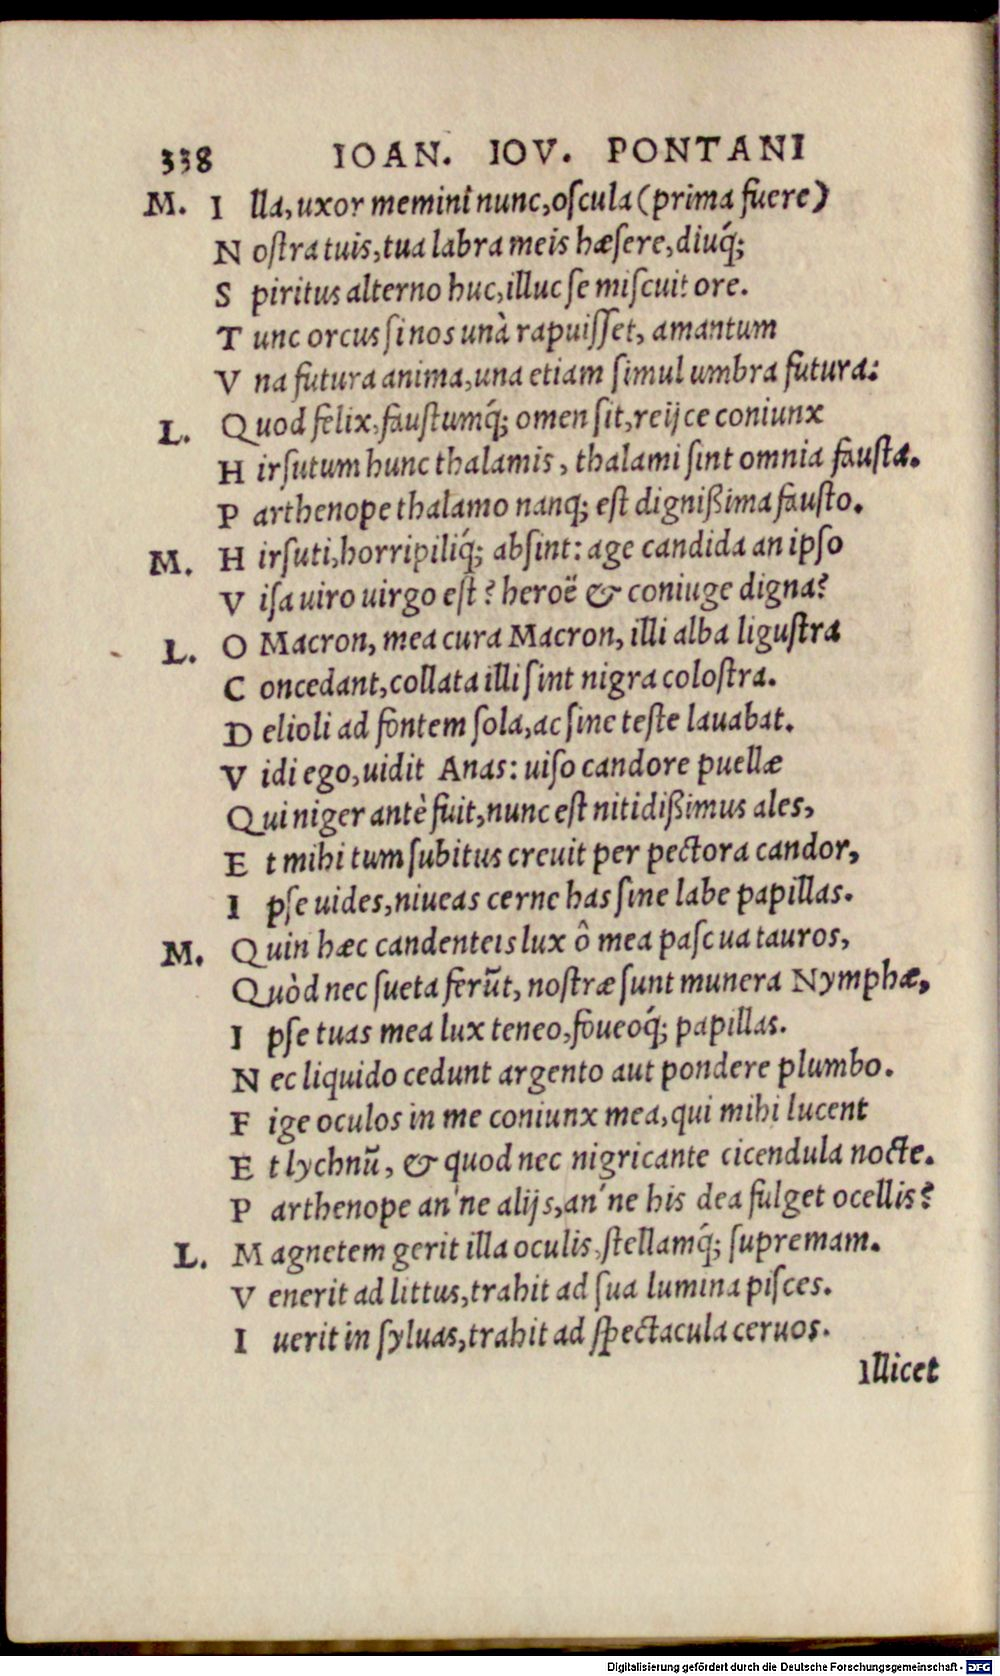 338 IOAN. IOV. PONTANI
M. I lla, uxor memini nunc, oſcula (prima fuere)
N oſtra tuis, tua labra meis hæſere, diuq́;
S piritus alterno huc, illuc ſe miſcuit ore.
T unc orcus ſi nos unà rapuiſſet, amantum
V na futura anima, una etiam ſimul umbra futura:
L. Quod felix, fauſtumq́; omen ſit, reijce coniunx
H irſutum hunc thalamis, thalami ſint omnia fauſta.
P arthenope thalamo nanq; eſt digniſſima fauſto.
M. H irſuti, horripiliq́; abſint: age candida an ipſo
V iſa uiro uirgo eſt? heroë & coniuge digna?
L. O Macron, mea cura Macron, illi alba liguſtra
C oncedant, collata illi ſint nigra coloſtra.
D elioli ad fontem ſola, ac ſine teſte lauabat.
V idi ego, uidit Anas: uiſo candore puellæ
Qui niger antè fuit, nunc eſt nitidiſſimus ales,
E t mihi tum ſubitus creuit per pectora candor,
I pſe uides, niueas cerne has ſine labe papillas.
M. Quin hæc candenteis lux ô mea paſcua tauros,
Quòd nec ſueta ferũt, noſtræ ſunt munera Nymphæ,
I pſe tuas mea lux teneo, foueoq́; papillas.
N ec liquido cedunt argento aut pondere plumbo.
F ige oculos in me coniunx mea, qui mihi lucent
E t lychnũ, & quod nec nigricante cicendula nocte.
P arthenope an'ne alijs, an'ne his dea fulget ocellis?
L. M agnetem gerit illa oculis, ſtellamq́; ſupremam.
V enerit ad littus, trahit ad ſua lumina piſces.
I uerit in ſyluas, trahit ad ſpectacula ceruos.
Illicet
Digitalisierung gefördert durch die Deutsche Forschungsgemeinschaft - DFG